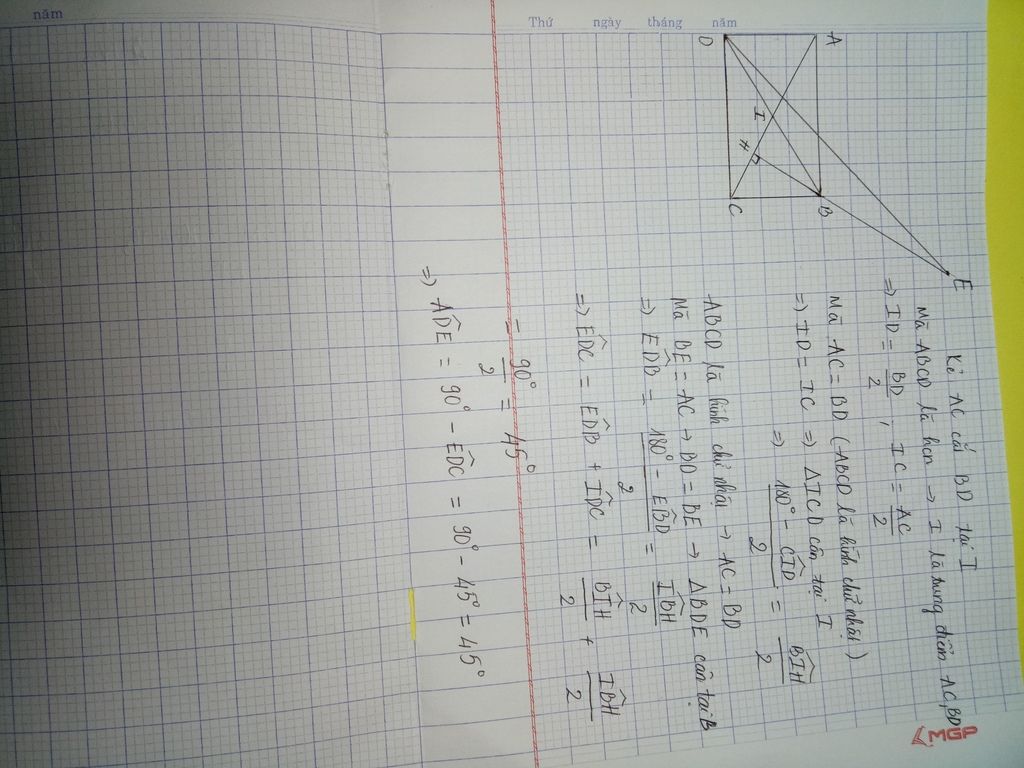 năm
Thứ ngày tháng năm
A
D
I
H
B
C
E
Kẻ AC cắt BD tại I
Mà ABCD là hcn → I là trung điểm AC, BD
=) ID = BD/2 , IC = AC/2
Mà AC = BD (ABCD là hình chữ nhật)
=) ID = IC =) ΔICD cân tại I
=) 180° - CÎD / 2 = BÎH / 2
ABCD là hình chữ nhật → AC = BD
Mà BE = AC → BD = BE → ΔBDE cân tại B
=) ED̂B = 180° - EB̂D / 2 = IB̂H / 2
=) ED̂C = ED̂B + ID̂C = BÎH / 2 + IB̂H / 2
= 90° / 2 = 45°
=) AD̂E = 90° - ED̂C = 90° - 45° = 45°
MGP